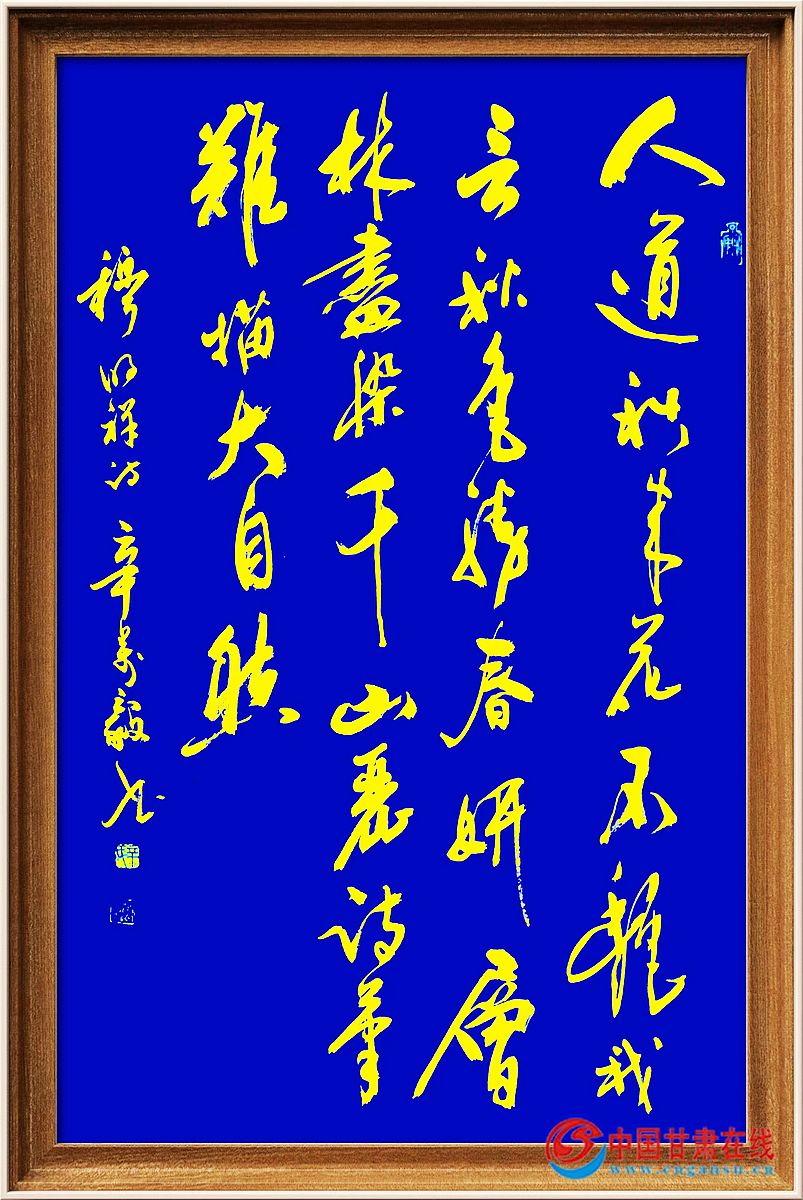 人道秋来花不我
言秋色勝春妍層
林盡染千山麗诗筆
難描大自然
穆明祥诗 辛萬毅书
中国甘肃在线
www.cngansu.cn